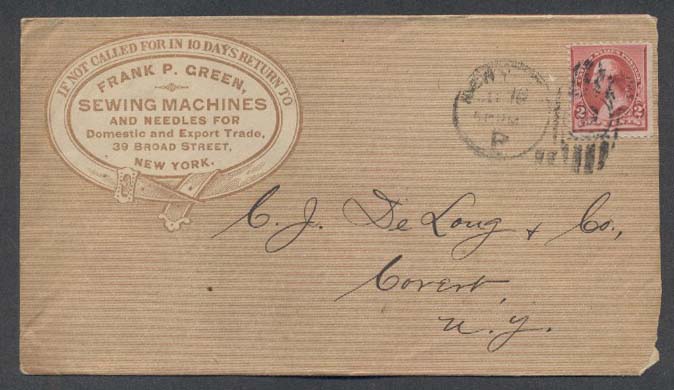 IF NOT CALLED FOR IN 10 DAYS RETURN TO
FRANK P. GREEN,
SEWING MACHINES
AND NEEDLES FOR
Domestic and Export Trade,
39 BROAD STREET,
NEW YORK.
NEW Y
P
2 2
C. J. De Long & Co.,
Covert,
N. Y.